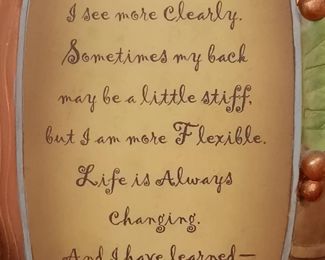 I see more Clearly.
Sometimes my back
may be a little stiff,
but I am more Flexible.
Life is Always
Changing.
And I have learned—